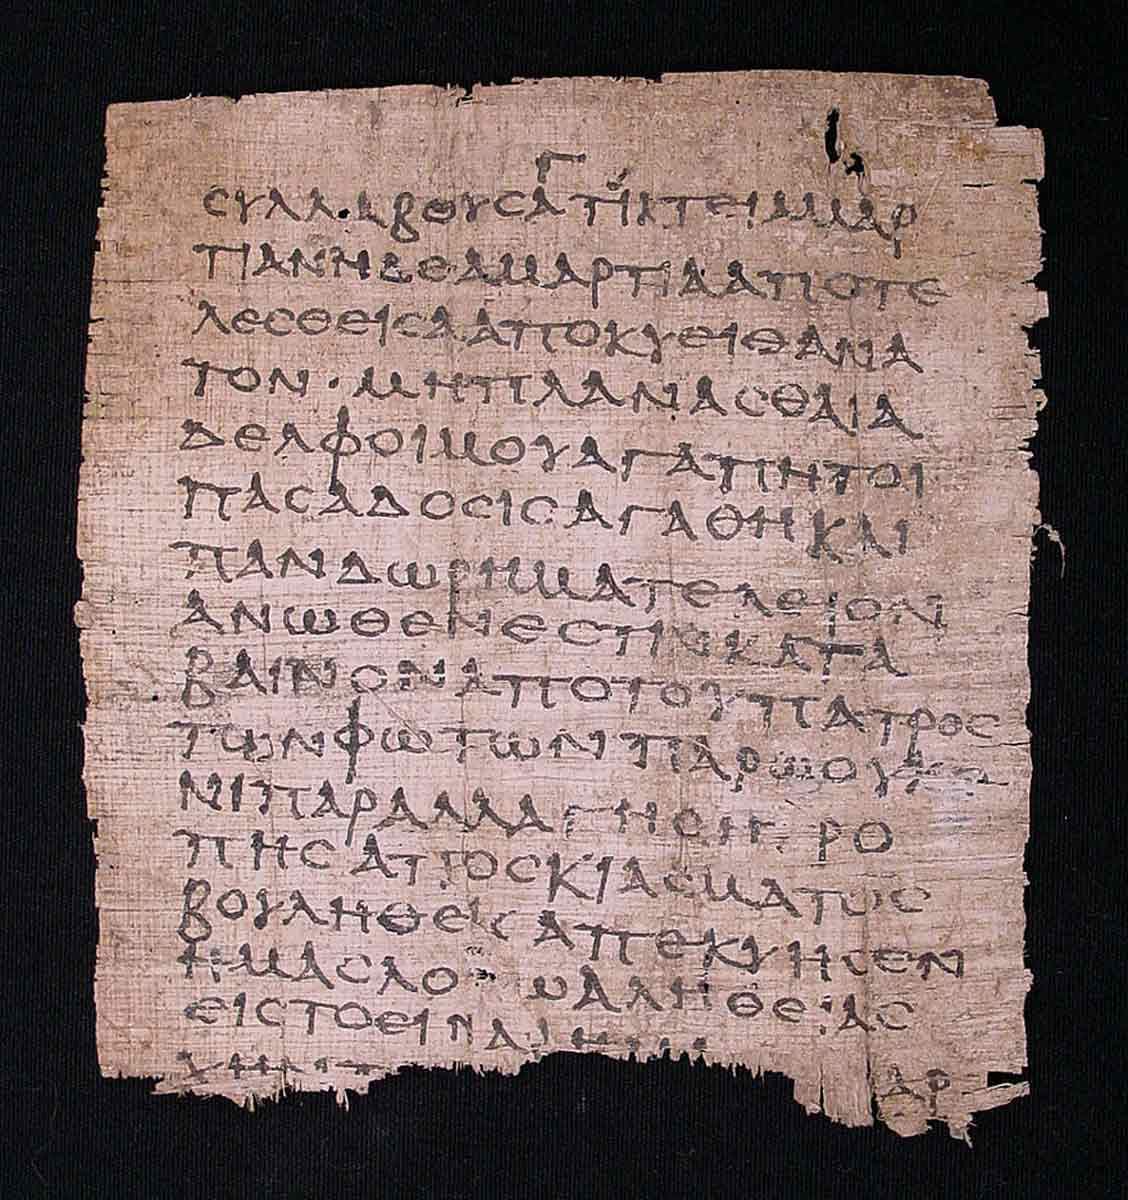 Γ
ϹΥΛΛΑΒΟΥϹΑ ΤΙΚΤΕΙ ΑΜΑΡ
ΤΙΑΝ Η ΔΕ ΑΜΑΡΤΙΑ ΑΠΟΤΕ
ΛΕϹΘΕΙϹΑ ΑΠΟΚΥΕΙ ΘΑΝΑ
ΤΟΝ · ΜΗ ΠΛΑΝΑϹΘΑΙ Α
ΔΕΛΦΟΙ ΜΟΥ ΑΓΑΠΗΤΟΙ
ΠΑϹΑ ΔΟϹΙϹ ΑΓΑΘΗ ΚΑΙ
ΠΑΝ ΔΩΡΗΜΑ ΤΕΛΕΙΟΝ
ΑΝΩΘΕΝ ΕϹΤΙΝ ΚΑΤΑ
ΒΑΙΝΟΝ ΑΠΟ ΤΟΥ ΠΑΤΡΟϹ
ΤΩΝ ΦΩΤΩΝ ΠΑΡ Ω ΟΥΚ
ΝΙ ΠΑΡΑΛΛΑΓΗϹ Η ΡΟ
ΠΗϹ ΑΠΟϹΚΙΑϹΜΑΤΟϹ
ΒΟΥΛΗΘΕΙϹ ΑΠΕΚΥΗϹΕΝ
ΗΜΑϹ ΑΛΗΘΕΙΑϹ
ΕΙϹ ΤΟ ΕΙΝΑΙ